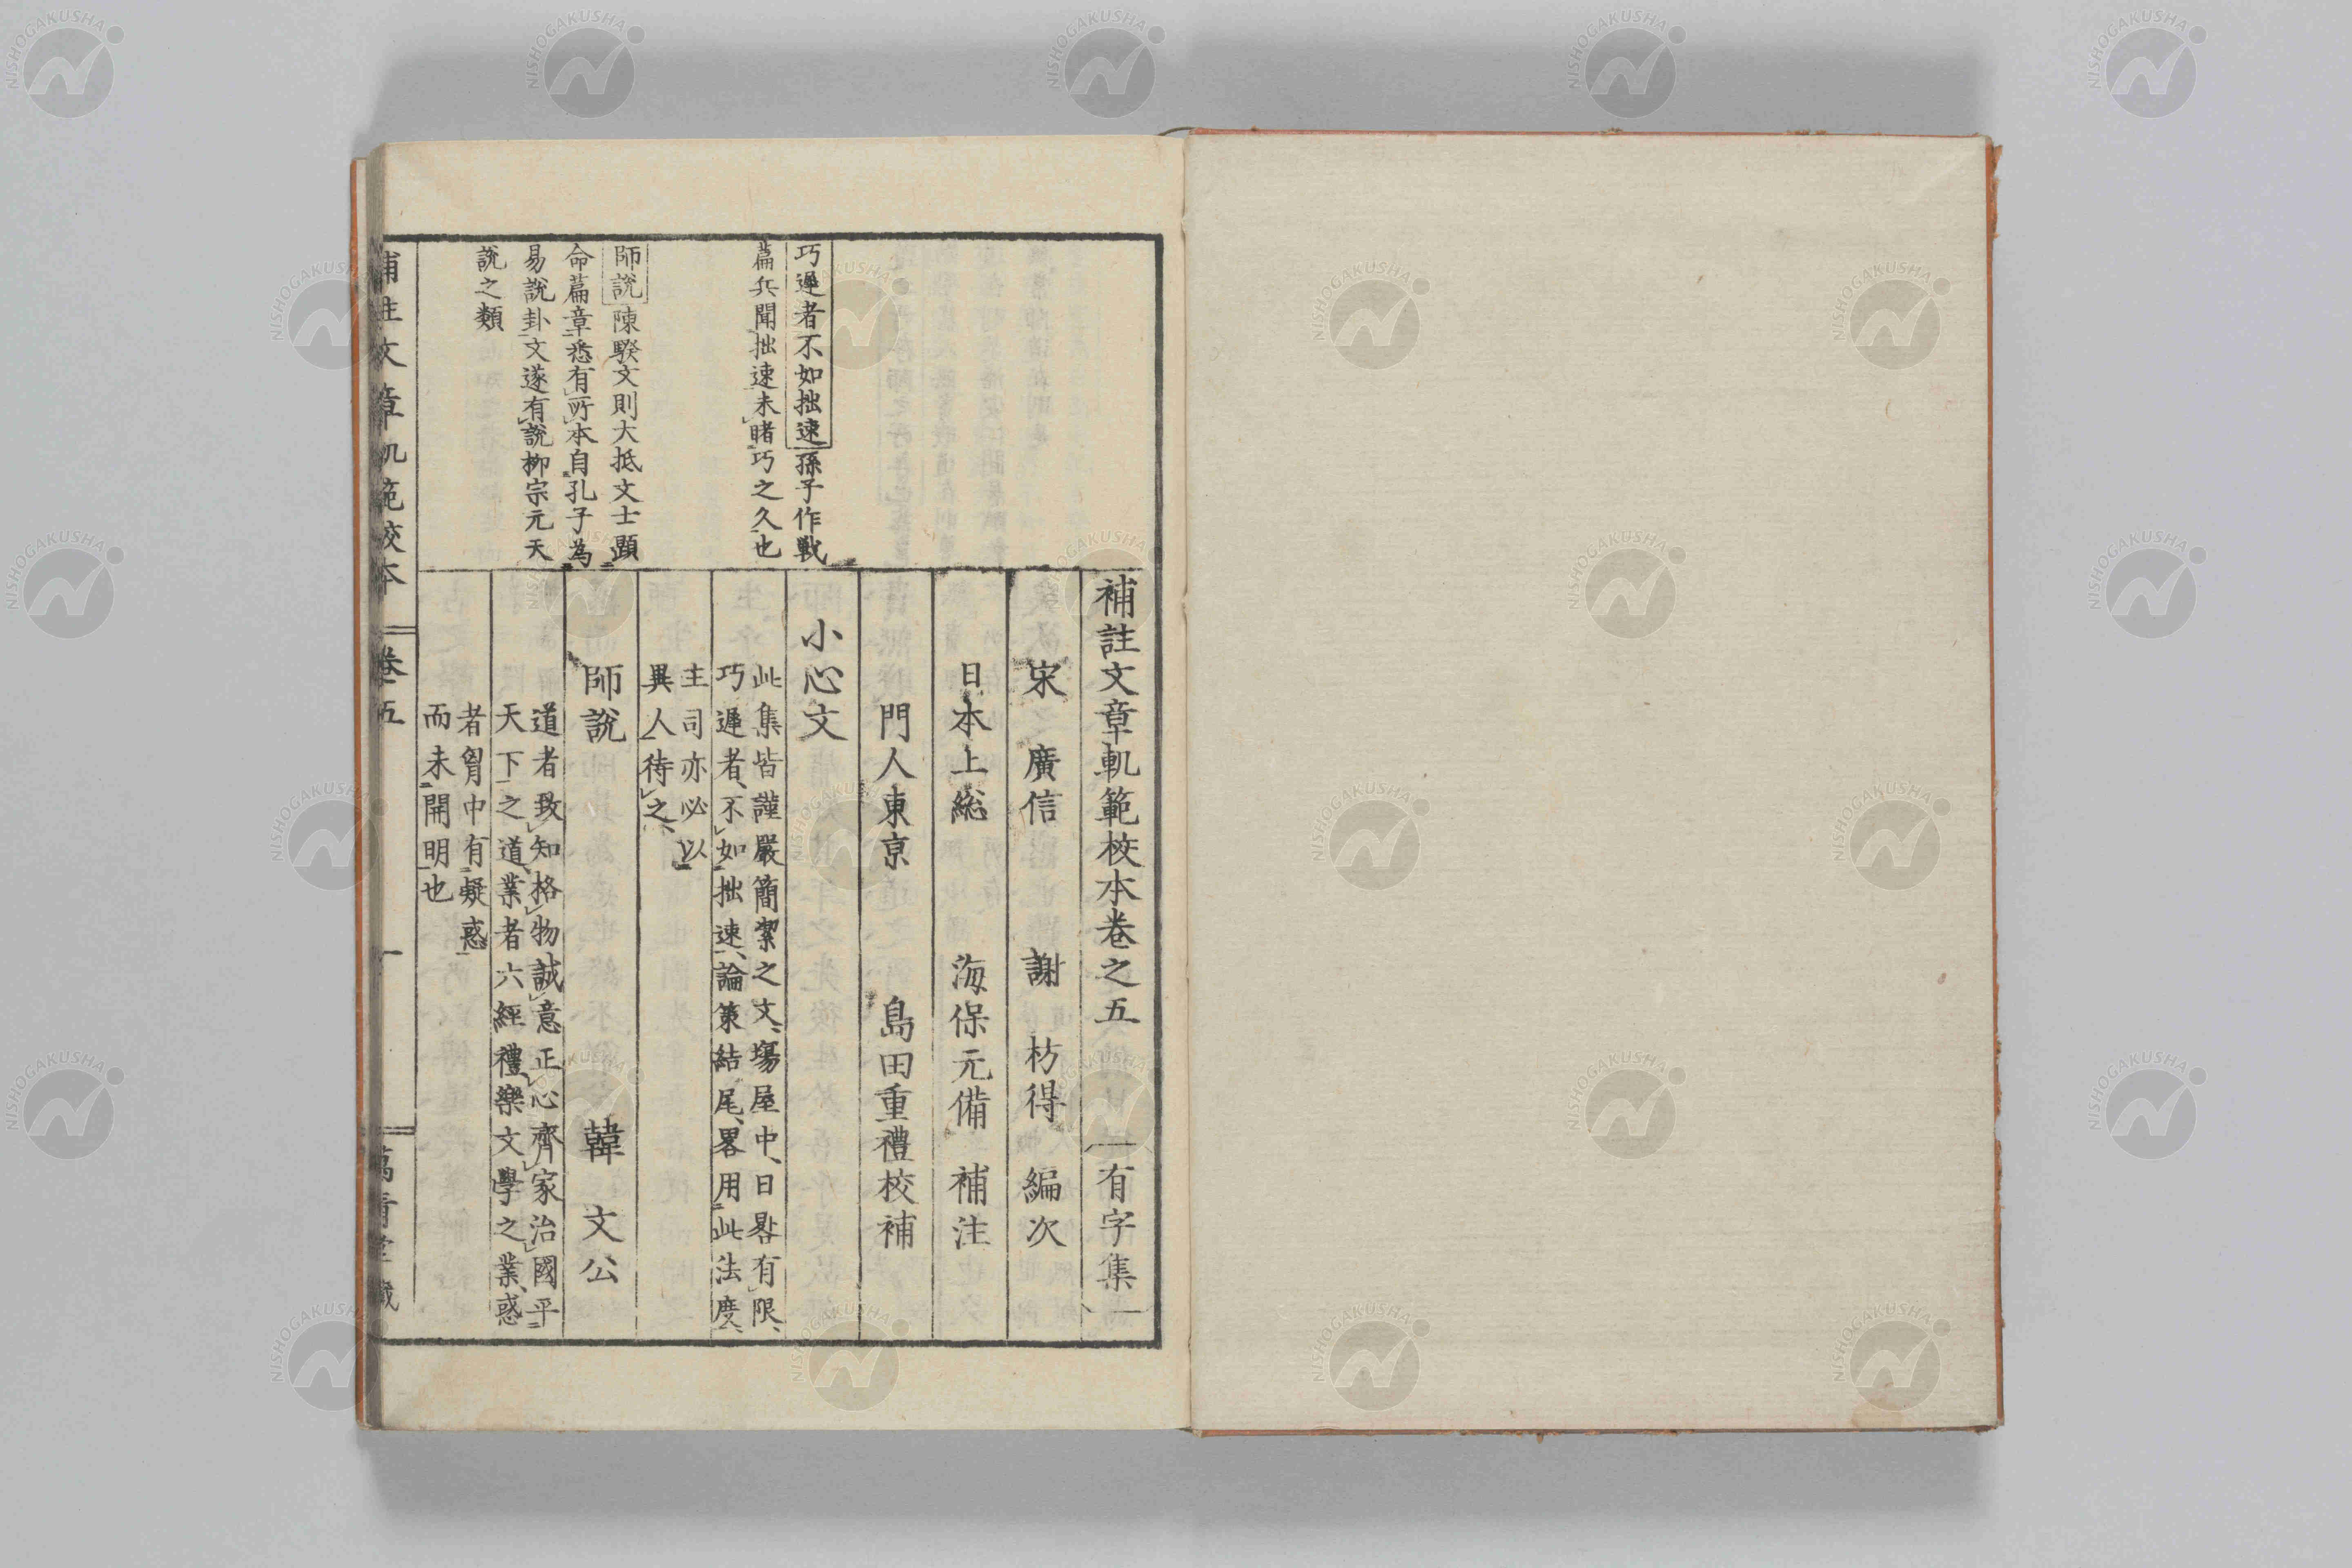 補註文章軌範校本卷之五 有字集
宋 廣信 謝 枋得 編次
日本上總 海保元備 補注
門人東京 島田重禮校補
小心文
此集皆謹嚴簡潔之文塲屋中日晷有限
巧遲者不如拙速論策結尾畧用此法度
主司亦必以
異人待之
師說 韓文公
道者致知格物誠意正心齊家治國平
天下之道業者六經禮樂文學之業惑
者胷中有疑惑
而未開明也
巧遲者不如拙速孫子作戰
篇兵聞拙速未睹巧之久也
師說陳騤文則大抵文士顯
命篇章悉有所本自孔子為
易說卦文遂有說柳宗元天
說之類
補註文章軌範校本 卷五 一 萬青堂藏
NISHOGAKUSHA